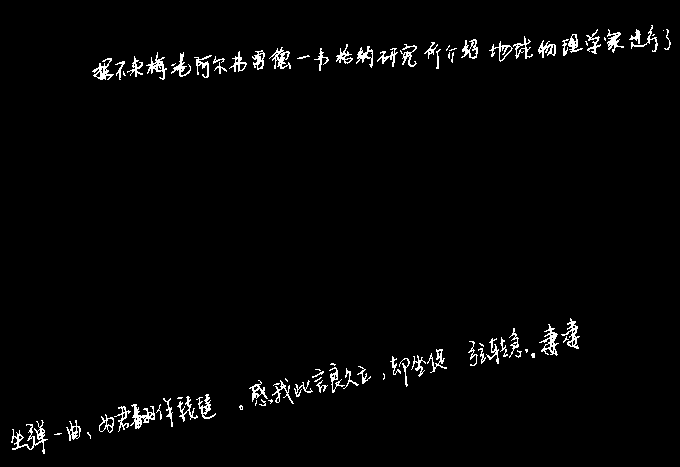 据不来梅港阿尔弗雷德一韦格纳研究所介绍地球物理学家进行了
坐弹一曲、为君翻作琵琶。感我此言良久立,却坐促弦转急。凄凄